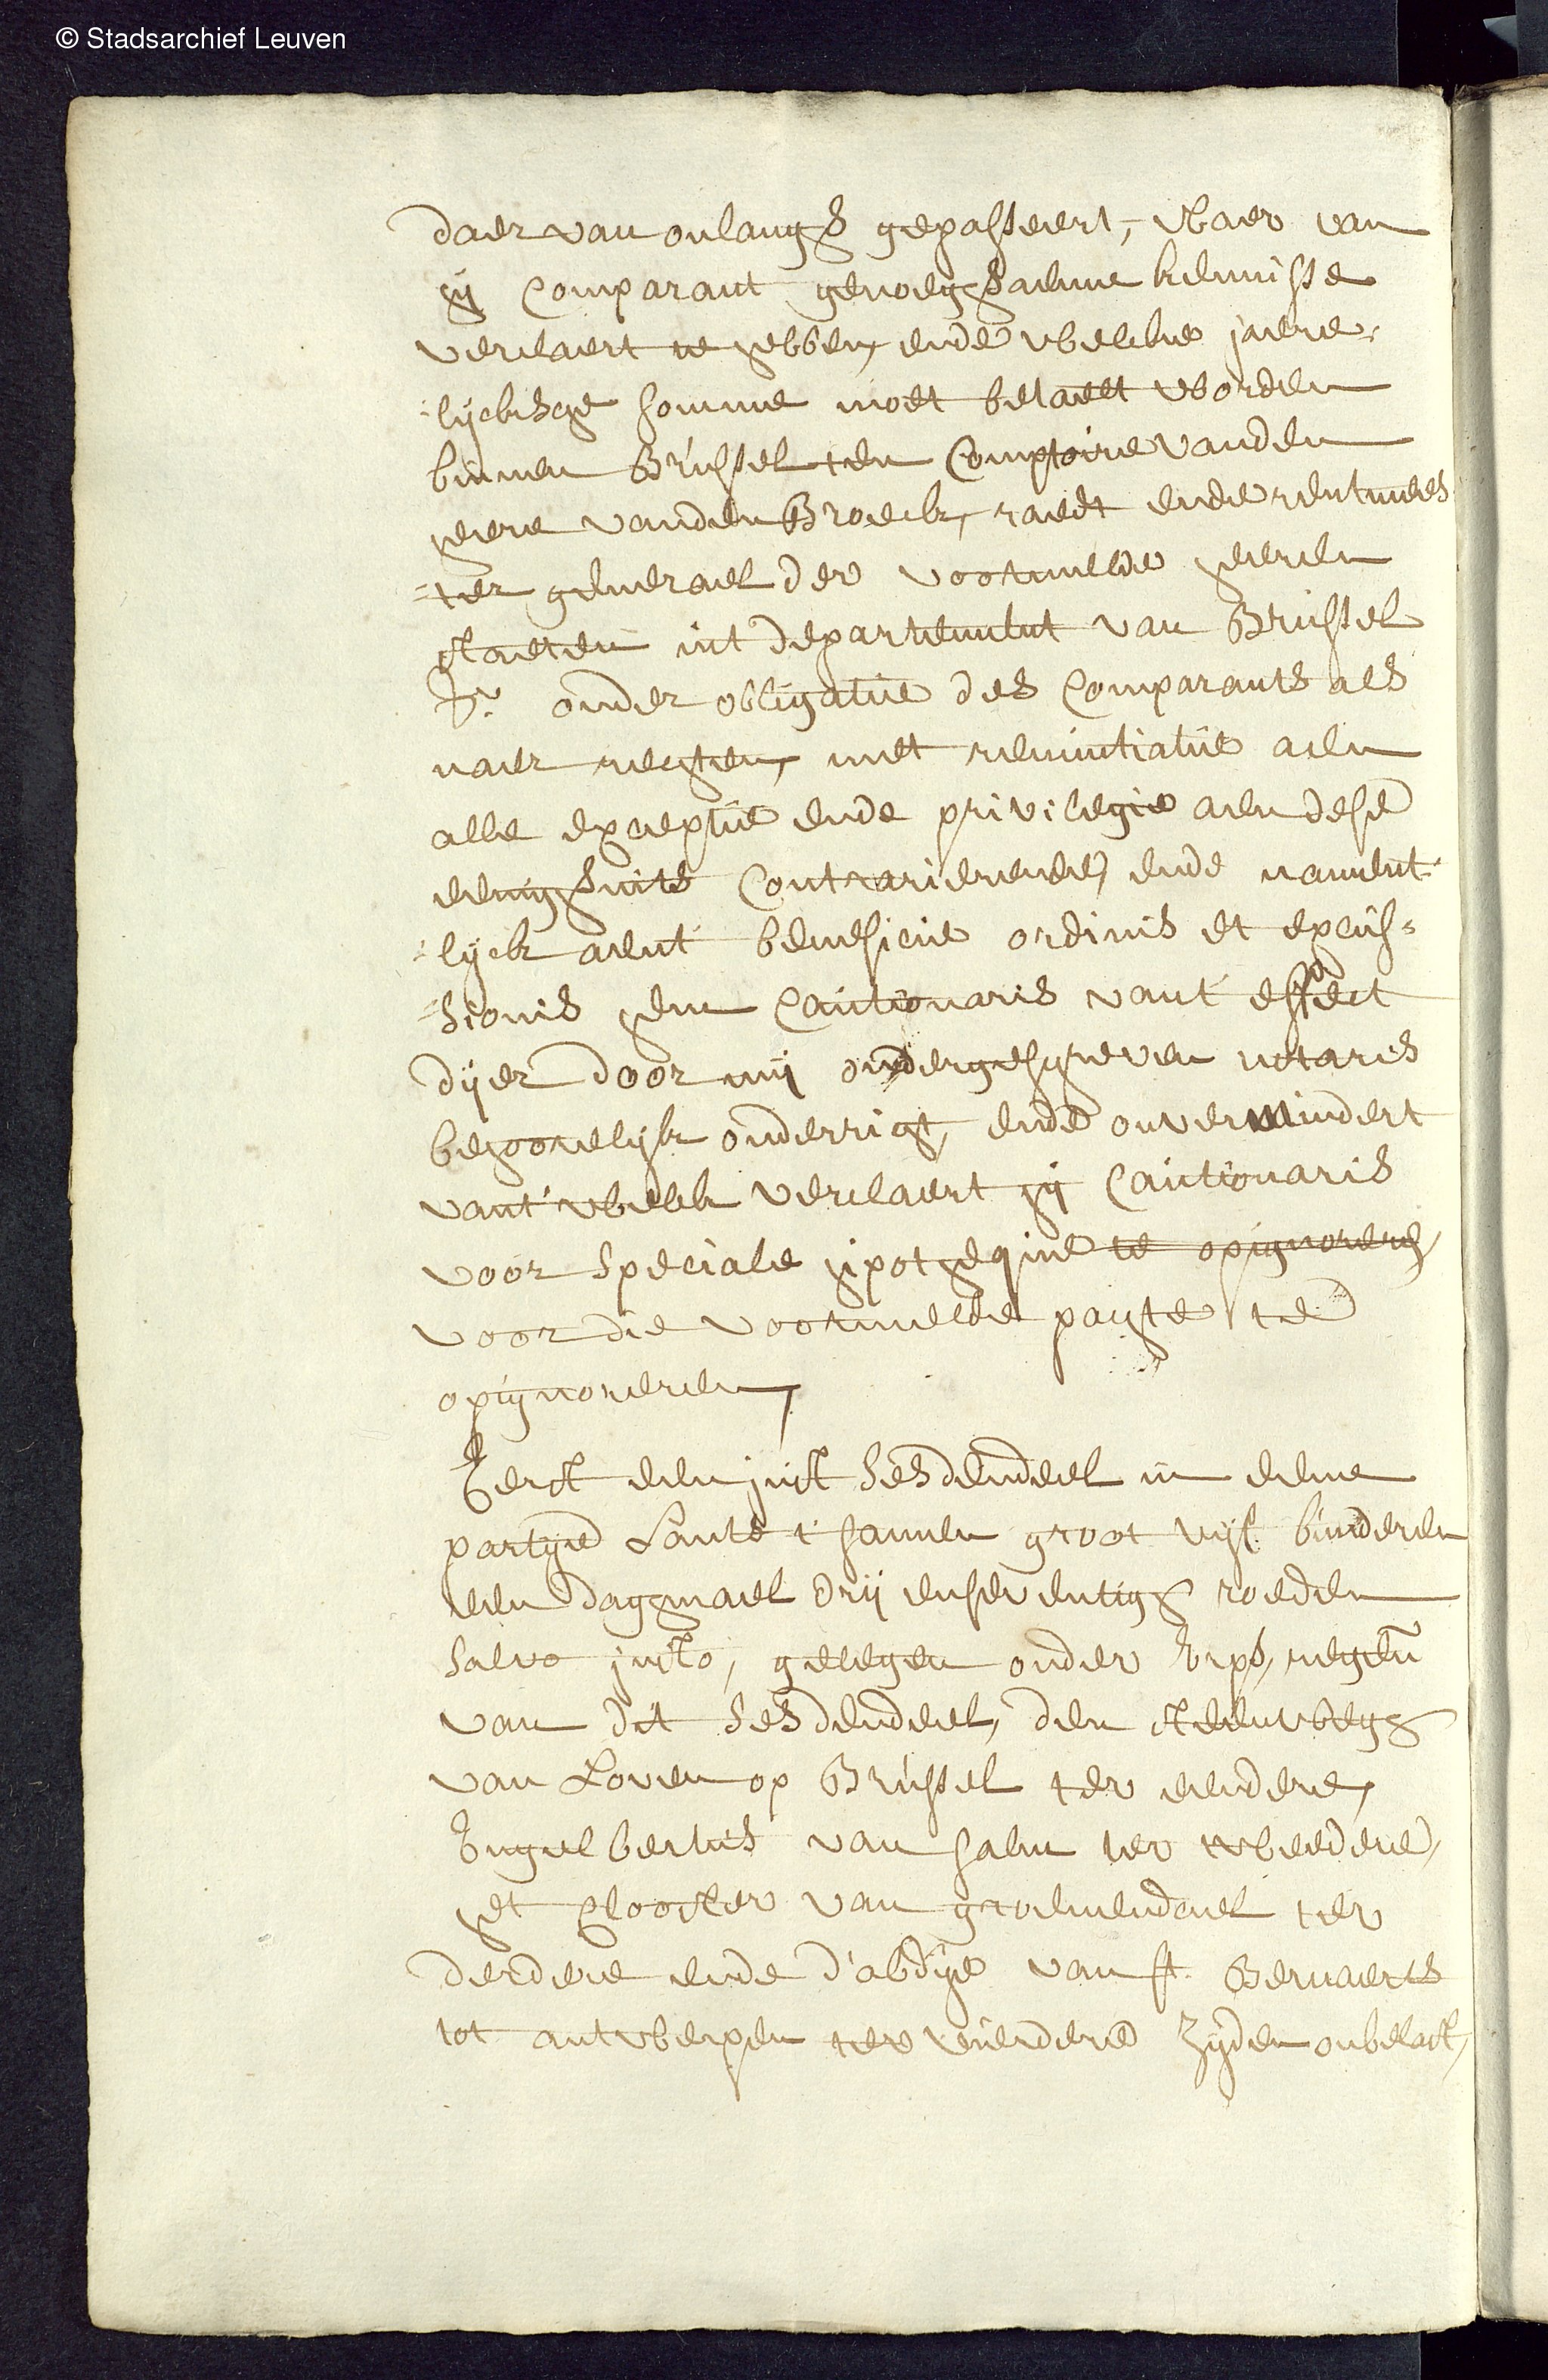 © Stadsarchief Leuven
daer van onlanghs gepasseert, waer van
hij Comparant genoeghsaeme kennisse
verclaert te hebben, ende welcke jaere-
lijcksche somme moet betaelt worden
binnen Brussel ten Comptoire vanden
heere vanden Broeck, raedt ende rentmees
-ter generael der voormelde heeren
staeten int departement van Brussel
onder obligatie des Comparants als
naer rechten, met renuntiatie aen
alle exceptie ende privilegie aen dese
eenighsints Contrarierende, ende nament-
-lijck aent beneficie ordinis et excus-
-sionis hem Cautionaris vant effect
dijer door mij ondergeschreven notaris
behoorelijk onderricht, ende onvermindert
vant welck verclaert hij Cautionaris
voor speciale hipothequie te opignoreren,
voor die voormelde pachte te
opignoreren,
Eerst een just sesdendeel in eene
partije Lants t'samen groot vijf bunderen
een daghmael drij enseventigh roeden
salvo justo, gelegen onder Erps, regen
van dit sesdendeel, den steenwegh
van Loven op Brussel ter eendere,
Engelbertus van halm ter tweedere,
het Clooster van groenendael ter
derdere ende d'abdije van st. Bernaerts
tot antwerpen ter vierdere zijden onbelast,